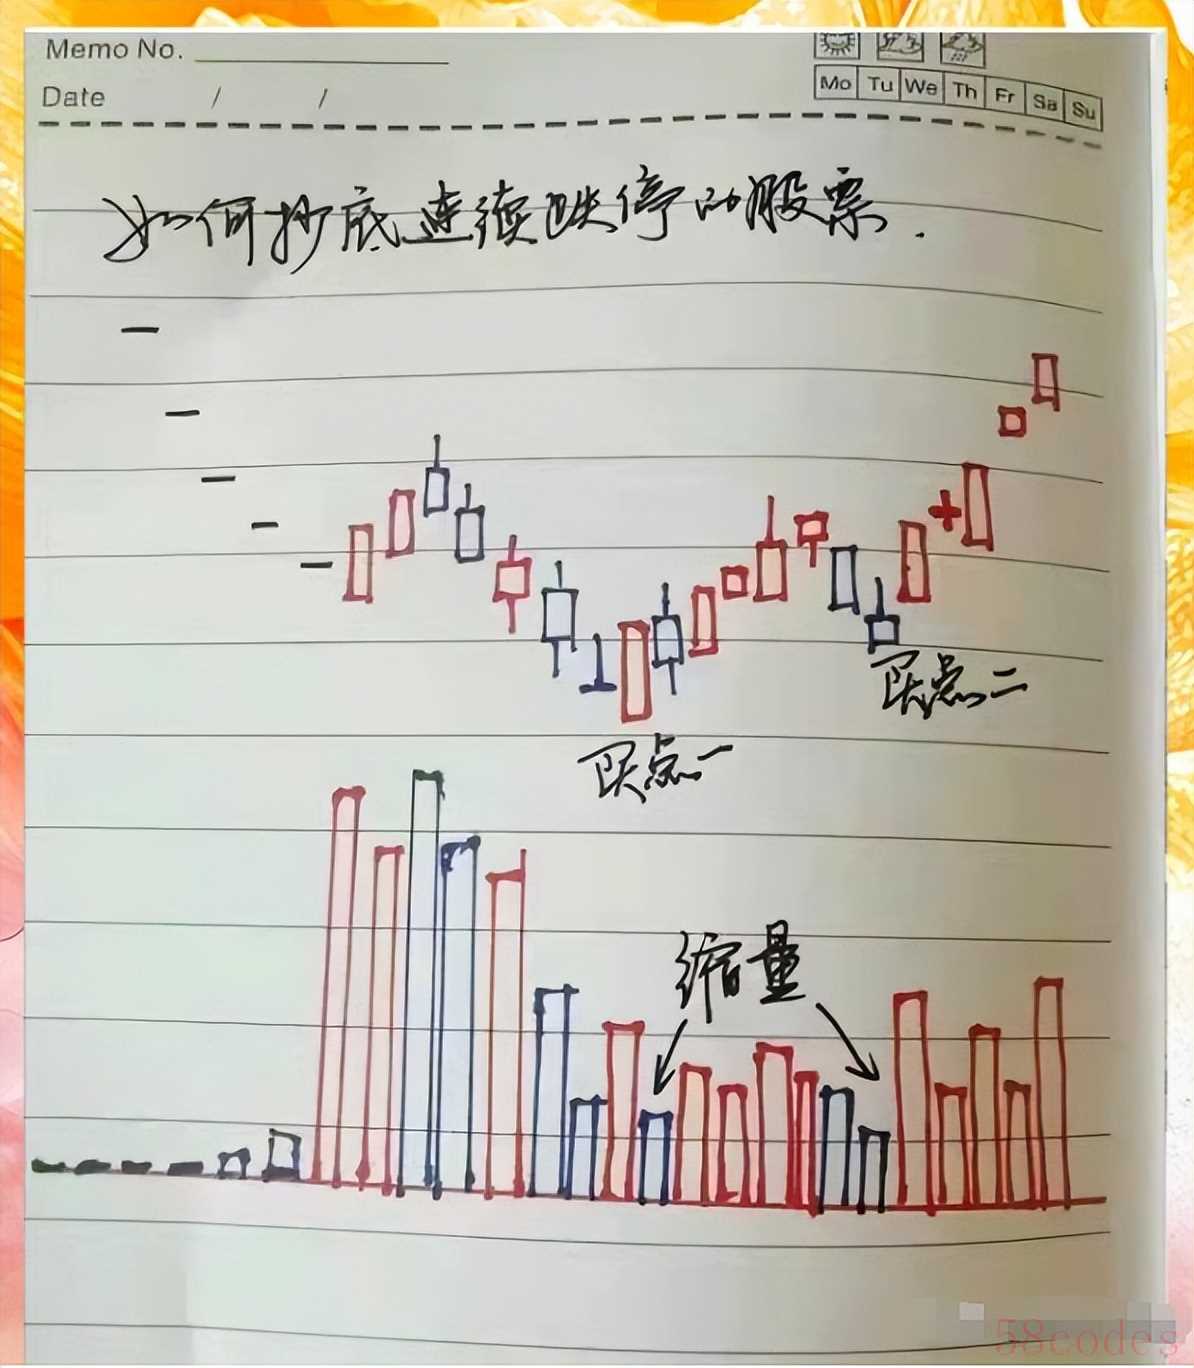 Memo No.
Mo Tu We Th Fr Sa Su
Date / /
如何抄底连续跌停的股票.
买点二
买点一
缩量
58codes